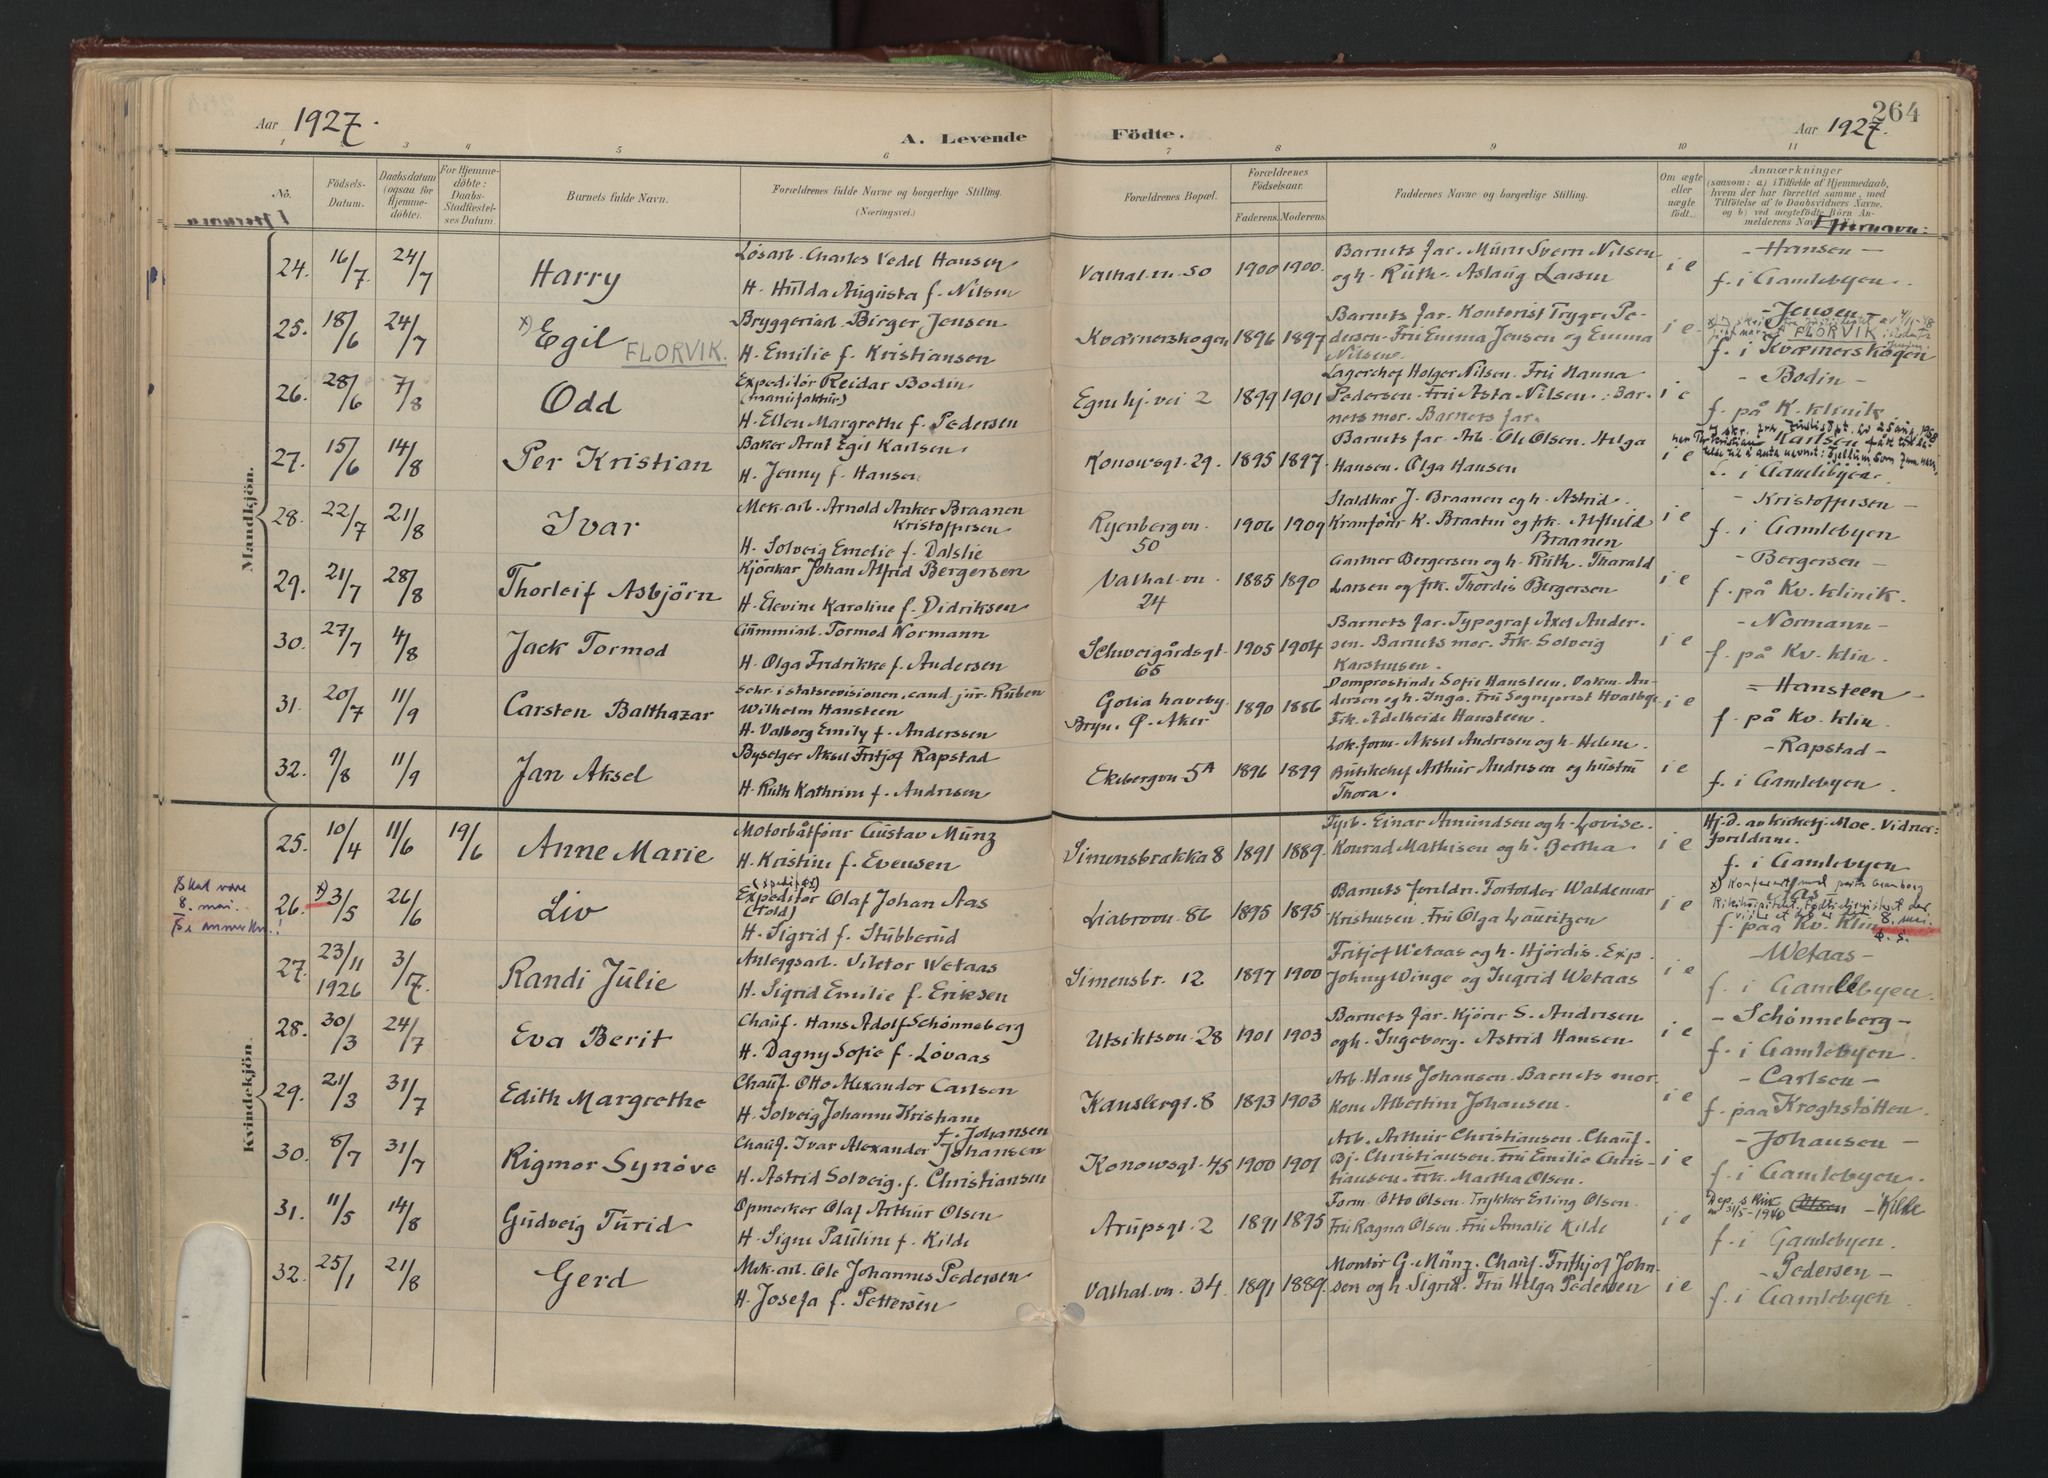 264
Aar 1927.
A. Levende Födte.
Aar 1927.
1 3 4 5 6 7 8 9 10 11
No.
Födsels-Datum.
Daabsdatum (ogsaa for Hjemmedöbte).
For Hjemmedöbte: Daabs-Stadfæstelses Datum.
Barnets fulde Navn.
Forældrenes fulde Navne og borgerlige Stilling.
(Næringsvei.)
Forældrenes Bopæl.
Forældrenes Födselsaar.
Faderens. Moderens.
Faddernes Navne og borgerlige Stilling.
Om ægte eller uægte födt.
Anmærkninger
(saasom: a) i Tilfælde af Hjemmedaab, hvem der har forrettet samme, med Tilföielse af to Daabsvidners Navne. og b) ved uægtefödte Börn Anmelderens Navn
Efternavn:
Mandkjön.
24. 16/7 24/7 Harry
Løsarb. Charles Vedel Hansen
H. Hulda Augusta f. Nilsen
Valhal.vn. 50 1900 1900.
Barnets far. Murer Svern Nilsen
og h. Ruth. Aslaug Larsen
i e
- Hansen -
f. i Gamlebyen.
25. 18/6 24/7 x) Egil FLORVIK.
Bryggeriarb. Birger Jensen
H. Emilie f. Kristiansen
Kværnerskogen 1896 1897
Barnets far. Kontorist Trygve Pe-
dersen. Fru Emma Jensen og Emma
Nilsen.
i e.
- Jensen -
FLORVIK
f. i Kværnerskogen
26. 28/6 7/8 Odd
Expeditör Reidar Bodin
(manufaktur)
H. Ellen Margrethe f. Pedersen
Egne hj. vei 2 1899 1901
Lagerchef Holger Nilsen. Fru Hanna
Pedersen. Fru Asta Nilsen. Bar-
nets mor. Barnets far.
i e
- Bodin -
f. på K. klinik
27. 15/6 14/8 Per Kristian
Baker Arnt Egil Karlsen
H. Jenny f. Hansen
Konowsgt. 29. 1895 1897.
Barnets far. Arb. Ole Olsen. Helga
Hansen. Olga Hansen
i e
Karlsen
f. i Gamlebyen.
28. 22/7 21/8 Ivar
Mek. arb. Arnold Anker Braanen
Kristoffersen
H. Solveig Emelie f. Dalslie
Ryenbergvn. 50 1906 1909
Staldkar J. Braanen og h. Astrid.
Kranförer K. Braaten og frk. Alfhild
Braanen
i e
- Kristoffersen -
f. i Gamlebyen
29. 21/7 28/8 Thorleif Asbjörn
Kjörekar Johan Alfrid Bergersen
H. Elevine Karoline f. Didriksen
Valhal.vn. 24 1885 1890
Gartner Bergersen og h. Ruth. Tharald
Larsen og frk. Thordis Bergersen
i e
- Bergersen -
f. på Kv. klinik.
30. 27/7 4/8 Jack Tormod
Gummiarb. Tormod Normann
H. Olga Fredrikke f. Andersen
Schweigårdsgt. 65 1905 1904
Barnets far. Typograf Axel Ander-
sen. Barnets mor. Frk. Solveig
Karstensen.
i e
- Normann -
f. på Kv. klin.
31. 20/7 11/9 Carsten Balthazar
Sekr. i statsrevisionen, cand. jur. Ruben
Wilhelm Hansteen
H. Valborg Emily f. Anderssen
Golia haveby
Bryn. Ø. Aker 1890 1886
Domprostinde Sofie Hansteen. Vakm. An-
dersen og h. Inga. Fru Sogneprest Hvalbye
Frk. Adelheide Hansteen.
i e
- Hansteen -
f. på Kv. klin.
32. 9/8 11/9 Jan Aksel
Byselger Aksel Fritjof Rapstad
H. Ruth Kathrine f. Andresen
Ekebergvn 5A 1896 1899
Lok. form. Aksel Andresen og h. Helene.
Butikchef Arthur Andresen og hustru
Thora.
i e
- Rapstad -
f. i Gamlebyen
Kvindekjön.
25. 10/4 11/6 19/6 Anne Marie
Motorbåtförer Gustav Münz
H. Kristine f. Evensen
Simensbrakka 8 1891 1889.
Fyrb. Einar Amundsen og h. Lovise.
Konrad Mathisen og h. Bertha
i e
Hj. D. av kirketj. Moe. Vidner:
foreldrene.
f. i Gamlebyen
Skal være
8. mai.
Se anmerkn.!
26. x) 3/5 26/6 Liv
Expeditör Olaf Johan Aas
(told)
H. Sigrid f. Stubberud
Liabrovn. 86 1895 1895
Barnets foreldre. Fortolder Waldemar
Kristensen. Fru Olga Lauritzen
i e
Aas
8. mai.
f. paa Kv. klin
27. 23/11 1926 3/7. Randi Julie
Anleggsarb. Viktor Wetaas
H. Sigrid Emilie f. Eriksen
Simensbr. 12 1897 1900
Fritjof Wetaas og h. Hjördis. Exp.
Johny Winge og Ingrid Wetaas
i e
- Wetaas -
f. i Gamlebyen.
28. 30/3 24/7 Eva Berit
Chauf. Hans Adolf Schönneberg
H. Dagny Sofie f. Lövaas
Utsiktsvn. 28 1901 1903
Barnets far. Kjörer S. Andresen
og h. Ingeborg. Astrid Hansen
i e
- Schönneberg -
f. i Gamlebyen.
29. 21/3 31/7 Edith Margrethe
Chauf. Otto Alexander Carlsen
H. Solveig Johanne Kristiane
f. Johansen
Kanslergt. 8 1893 1903
Arb. Hans Johansen. Barnets mor.
Kone Albertine Johansen.
i e
- Carlsen -
f. paa Kroghstötten.
30. 8/7 31/7 Rigmor Synöve
Chauf. Ivar Alexander Johansen
H. Astrid Solveig. f. Christiansen
Konowsgt. 45 1900 1901
Arb. Arthur Christiansen. Chauf.
Bj. Christiansen. Fru Emilie Chris-
tiansen. Frk. Martha Olsen.
i e
- Johansen -
f. i Gamlebyen.
31. 11/5 14/8 Gudveig Turid
Opmerker Olaf Arthur Olsen
H. Signe Pauline f. Kilde
Arupsgt. 2 1891 1895
Form. Otto Olsen. Trykker Erling Olsen.
Fru Ragna Olsen. Fru Amalie Kilde
i e
31/5-1940 Olsen - Kilde
f. i Gamlebyen.
32. 25/1 21/8 Gerd
Mek. arb. Ole Johannes Pedersen
H. Josefa f. Pettersen
Valhal.vn. 34. 1891 1889.
Montör G. Münz. Chauf. Frithjof John-
sen og h. Sigrid. Fru Helga Pedersen
i e
- Pedersen -
f. i Gamlebyen.